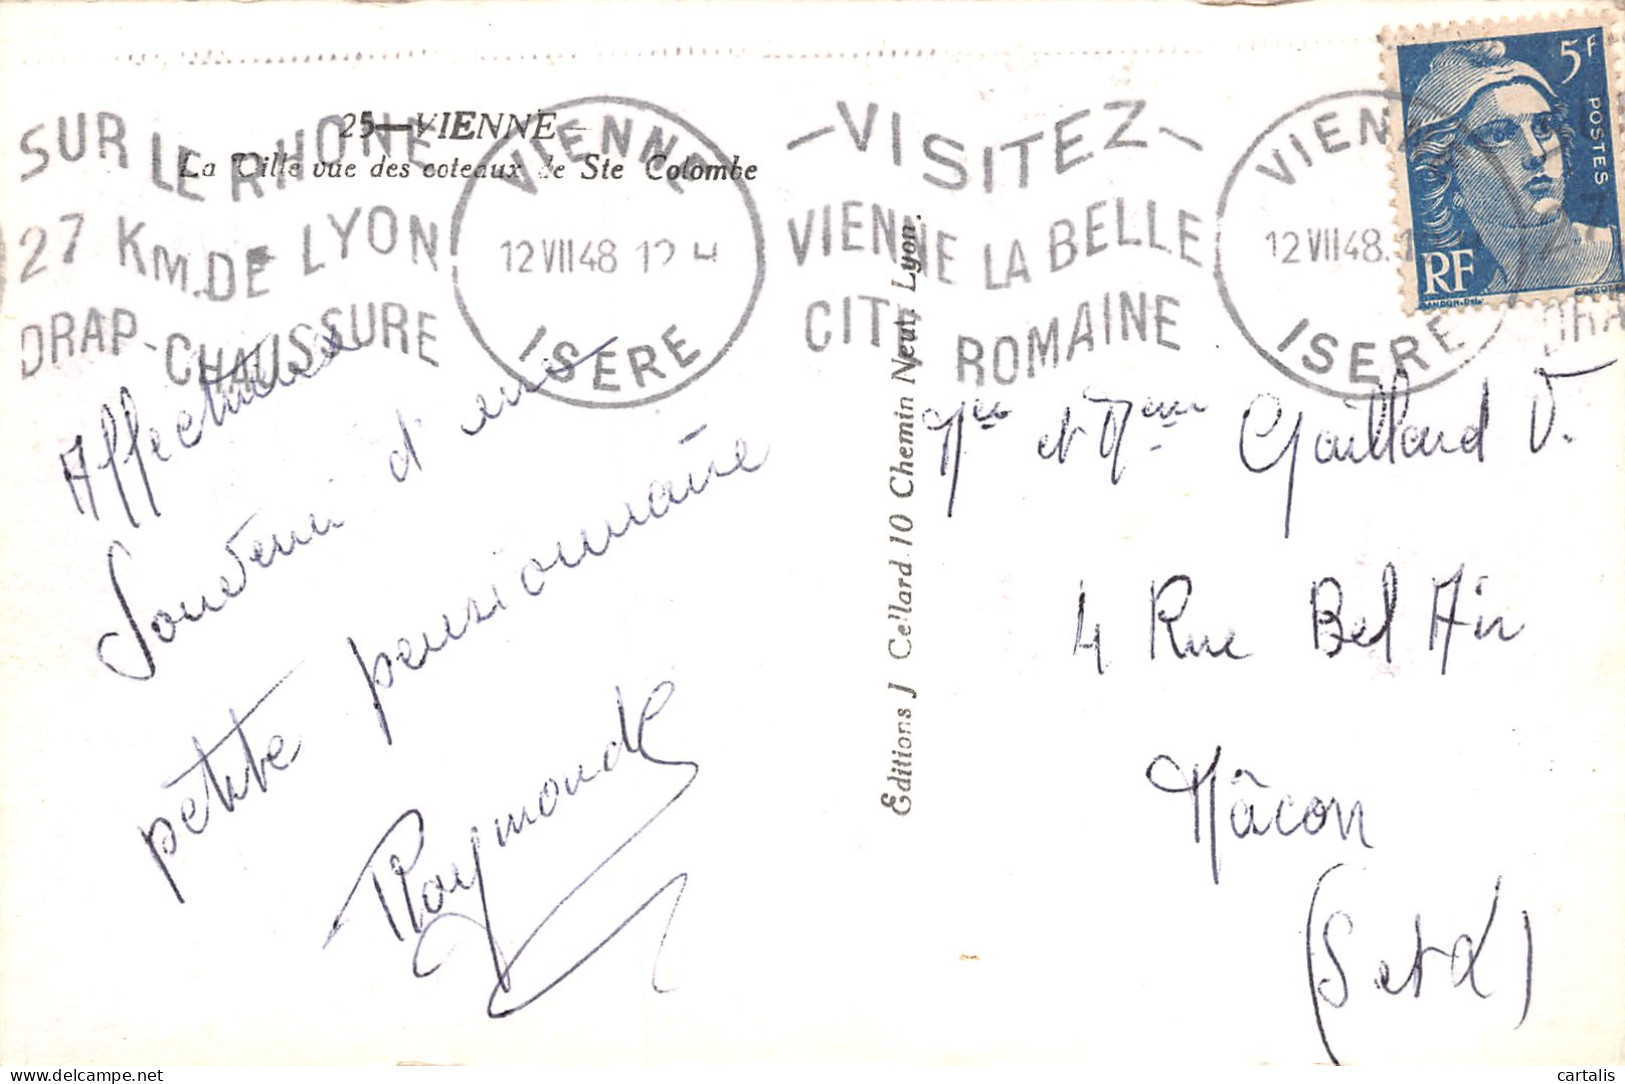 25—VIENNE
La Ville vue des coteaux de Ste Colombe
SUR LE RHONE
27 KM. DE LYON
DRAP-CHAUSSURE
VIENNE
12 VII 48
ISERE
—VISITEZ—
VIENNE LA BELLE
CITÉ ROMAINE
VIENNE
12 VII 48
ISERE
5F
POSTES
RF
GANDON-DEL.
CORTOT
Affectueux
Souvenir d'une
petite pensionnaire
Raymonde
Editions J Cellard 10 Chemin Neuf, Lyon.
Mr et Mme Gaillard V.
4 Rue Bel Air
Mâcon
(S et L)
cartalis